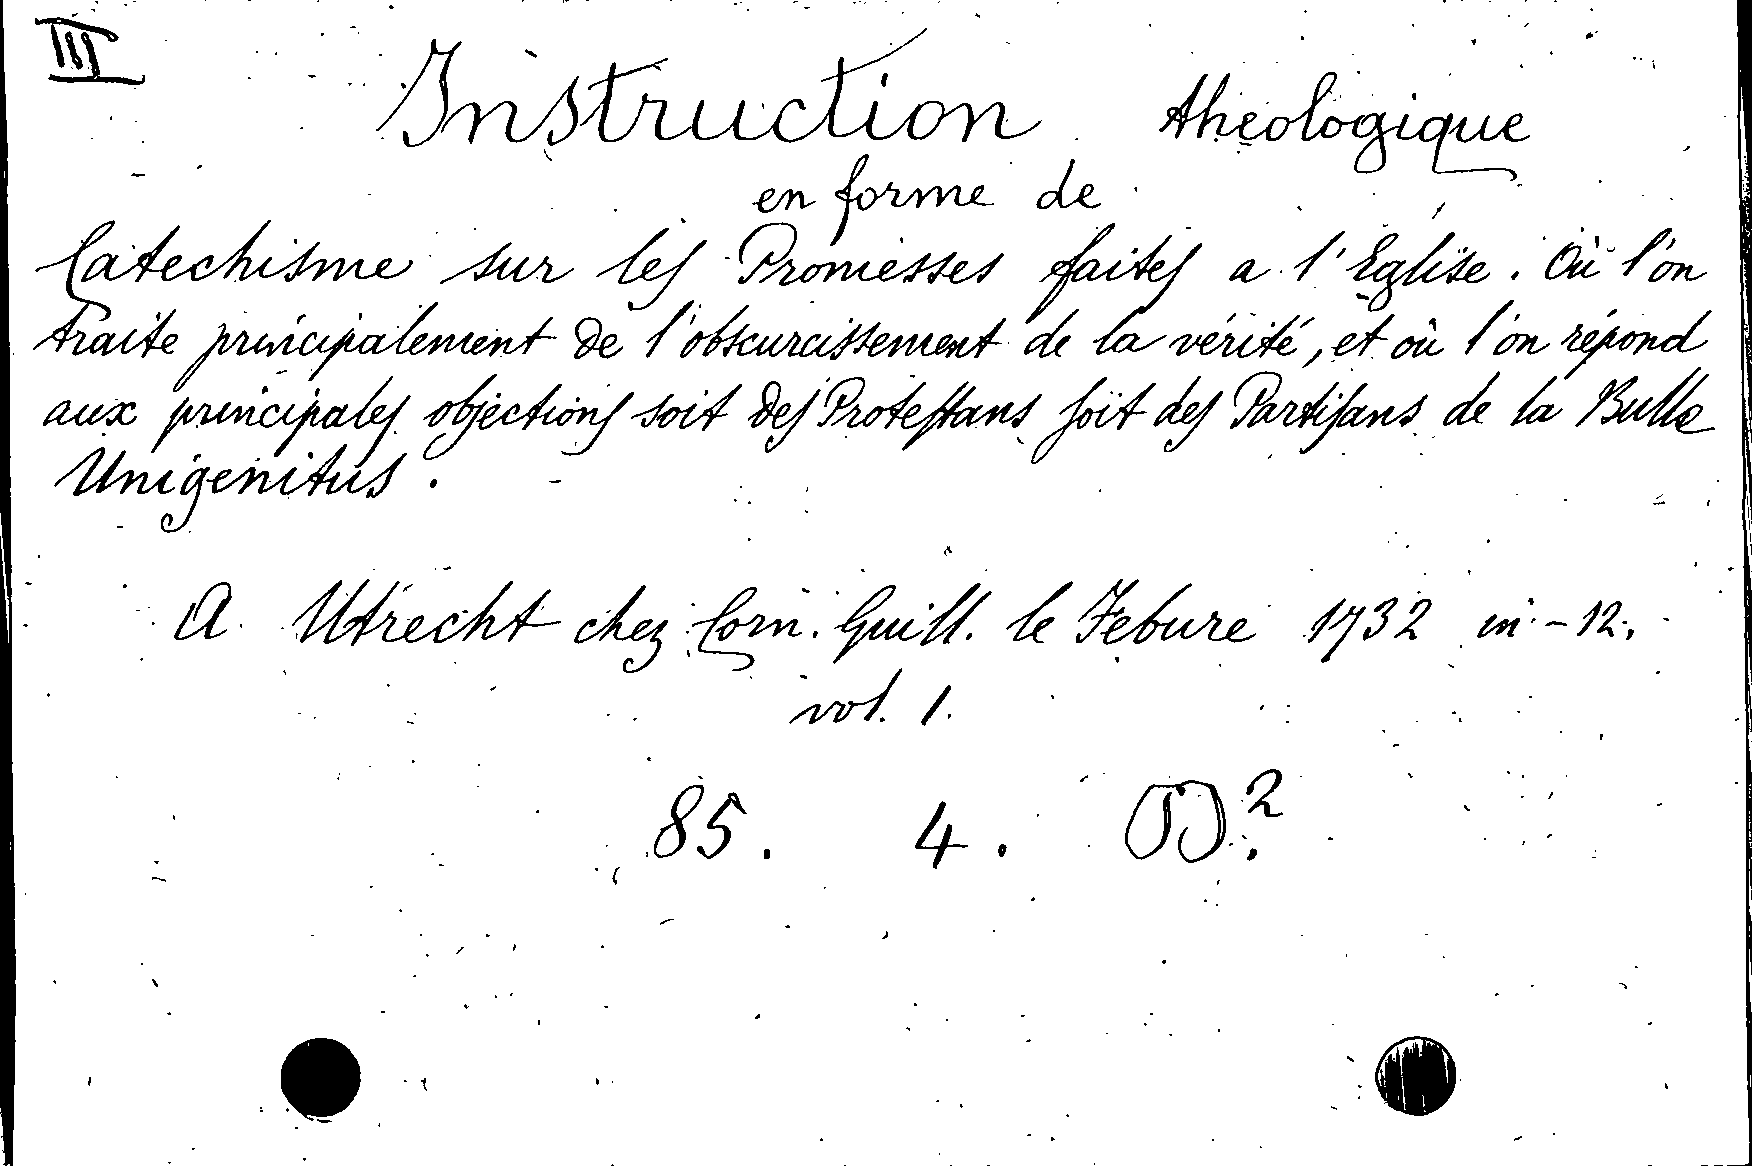 III
Instruction theologique
en forme de
Catechisme sur les Promesses faites a l'Eglise. Où l'on
traite principalement de l'obscurcissement de la vérité, et où l'on répond
aux principales objections soit des Protestans soit des Partisans de la Bulle
Unigenitus.
A Utrecht chez Corn. Guill. le Febure 1732 in-12.
vol. 1.
85. 4.